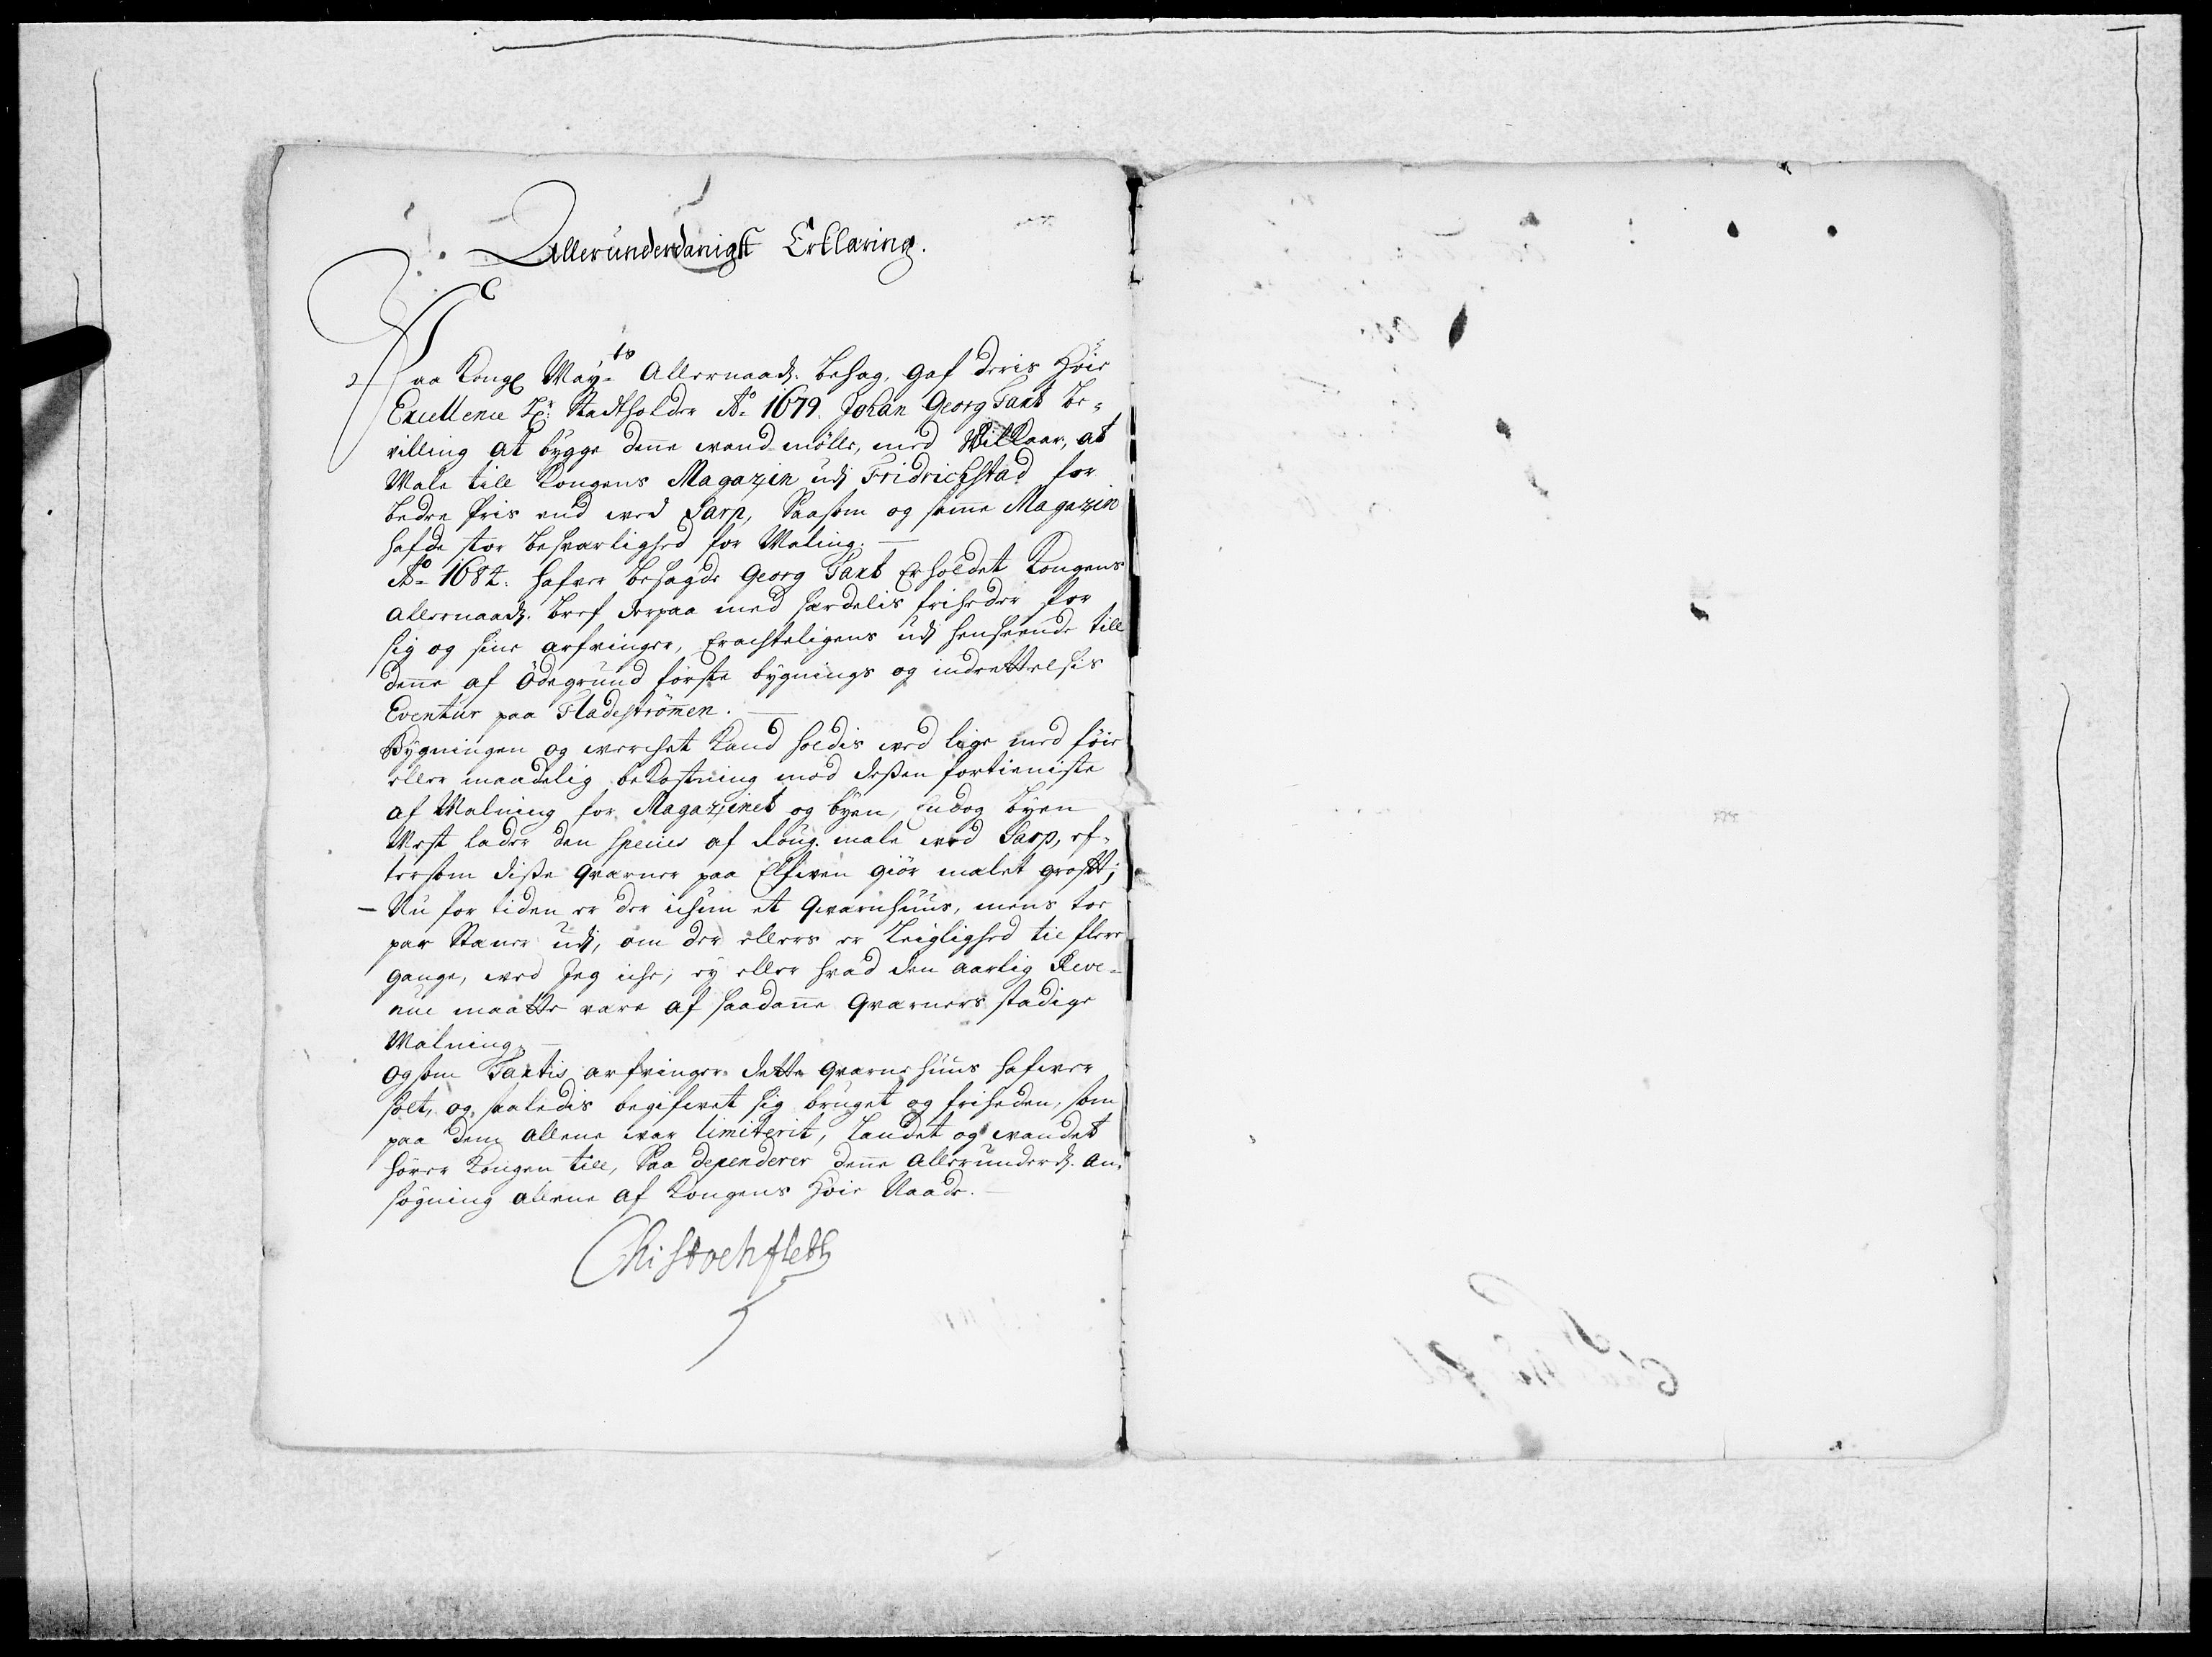 Allerunderdanigst Erklæring.
Paa Kongl May.ts Allernaad. behag, gaf deris Høie
Excellence Hr. Stadtholder Ao. 1679. Johan Georg Taxt be-
villing at bygge denne vand mølle, med Vilkaar, at
Male till Kongens Magazin udj Fridrichstad for
bedre Pris end ved Sarp, Saasom og samme Magazin
hafde stor besværlighed for Maling.
Ao. 1682. hafver besagde Georg Taxt Erholdet Kongens
allernaad. bref derpaa med særdelis friheder for
sig og sine arfvinger, Eragteligens udj henseende till
denne af Ödegrund første bygnings og indrettelsis
Eventur paa Fladestrømmen.
Bygningen og verchet kand holdis ved lige med föie
eller maadelig bekostning mod dessen fortieniste
af Malning for Magazinet og byen, endog byen
Mest lader den species af Roug. male ved Sarp, ef-
tersom disse qværner paa Elfven giör malet grofft;
- Nu for tiden er der ichun et Qværnhuus, mens toe
par Steener udj, om der ellers er Leiglighed til flere
gange, ved Jeg iche, ey eller hvad den aarlig Reve-
nue maatte være af saadanne Qværners stadige
Malning.
Og som Taxtis arfvinger dette qværnehuus hafver
solt, og saaledis begifvet sig bruget og friheden, som
paa dem allene var limiterit, Landet og vandet
hører Kongen till, Saa dependerer denne Allerunderd. An-
søgning allene af Kongens Høie Naade.
Chr: Stockfleth